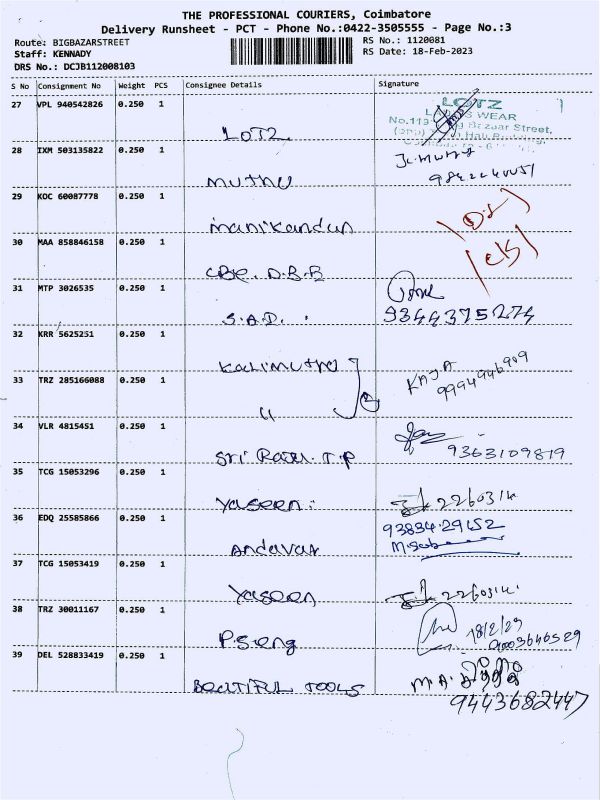 THE PROFESSIONAL COURIERS, Coimbatore
Delivery Runsheet - PCT - Phone No.:0422-3505555 - Page No.:3
Route: BIGBAZARSTREET
RS No.: 1120081
Staff: KENNADY
RS Date: 18-Feb-2023
DRS No.: DCJB112008103
S No Consignment No Weight PCS Consignee Details Signature
27 VPL 940542826 0.250 1
LOTZ
LOTZ
WEAR
Bazaar Street,
28 IXM 503135822 0.250 1
muthu
29 KOC 60087778 0.250 1
manikandan
30 MAA 858846158 0.250 1
CBE. D.B.B
31 MTP 3026535 0.250 1
S.A.D.
9344375274
32 KRR 5625251 0.250 1
Kalimuthu
33 TRZ 285166088 0.250 1
"
KAJA
9994946909
34 VLR 4815451 0.250 1
Sri Raju. T.P
9363109819
35 TCG 15053296 0.250 1
Yaseen
2260314
36 EDQ 25585866 0.250 1
Andavar
93834.29152
37 TCG 15053419 0.250 1
Yaseen
2260314
38 TRZ 30011167 0.250 1
P.S.eng
39 DEL 528833419 0.250 1
BEAUTIFUL TOOLS
M.A.
9443682447